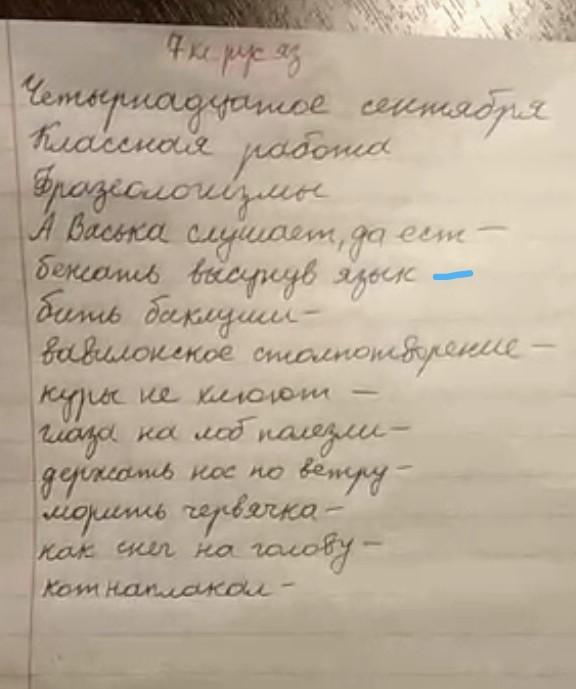 7 кл рус яз
Четырнадцатое сентября
Классная работа
Фразеологизмы
А Васька слушает, да ест –
бежать высунув язык –
бить баклуши –
вавилонское столпотворение –
куры не клюют –
глаза на лоб полезли –
держать нос по ветру –
морить червячка –
как снег на голову –
кот наплакал –